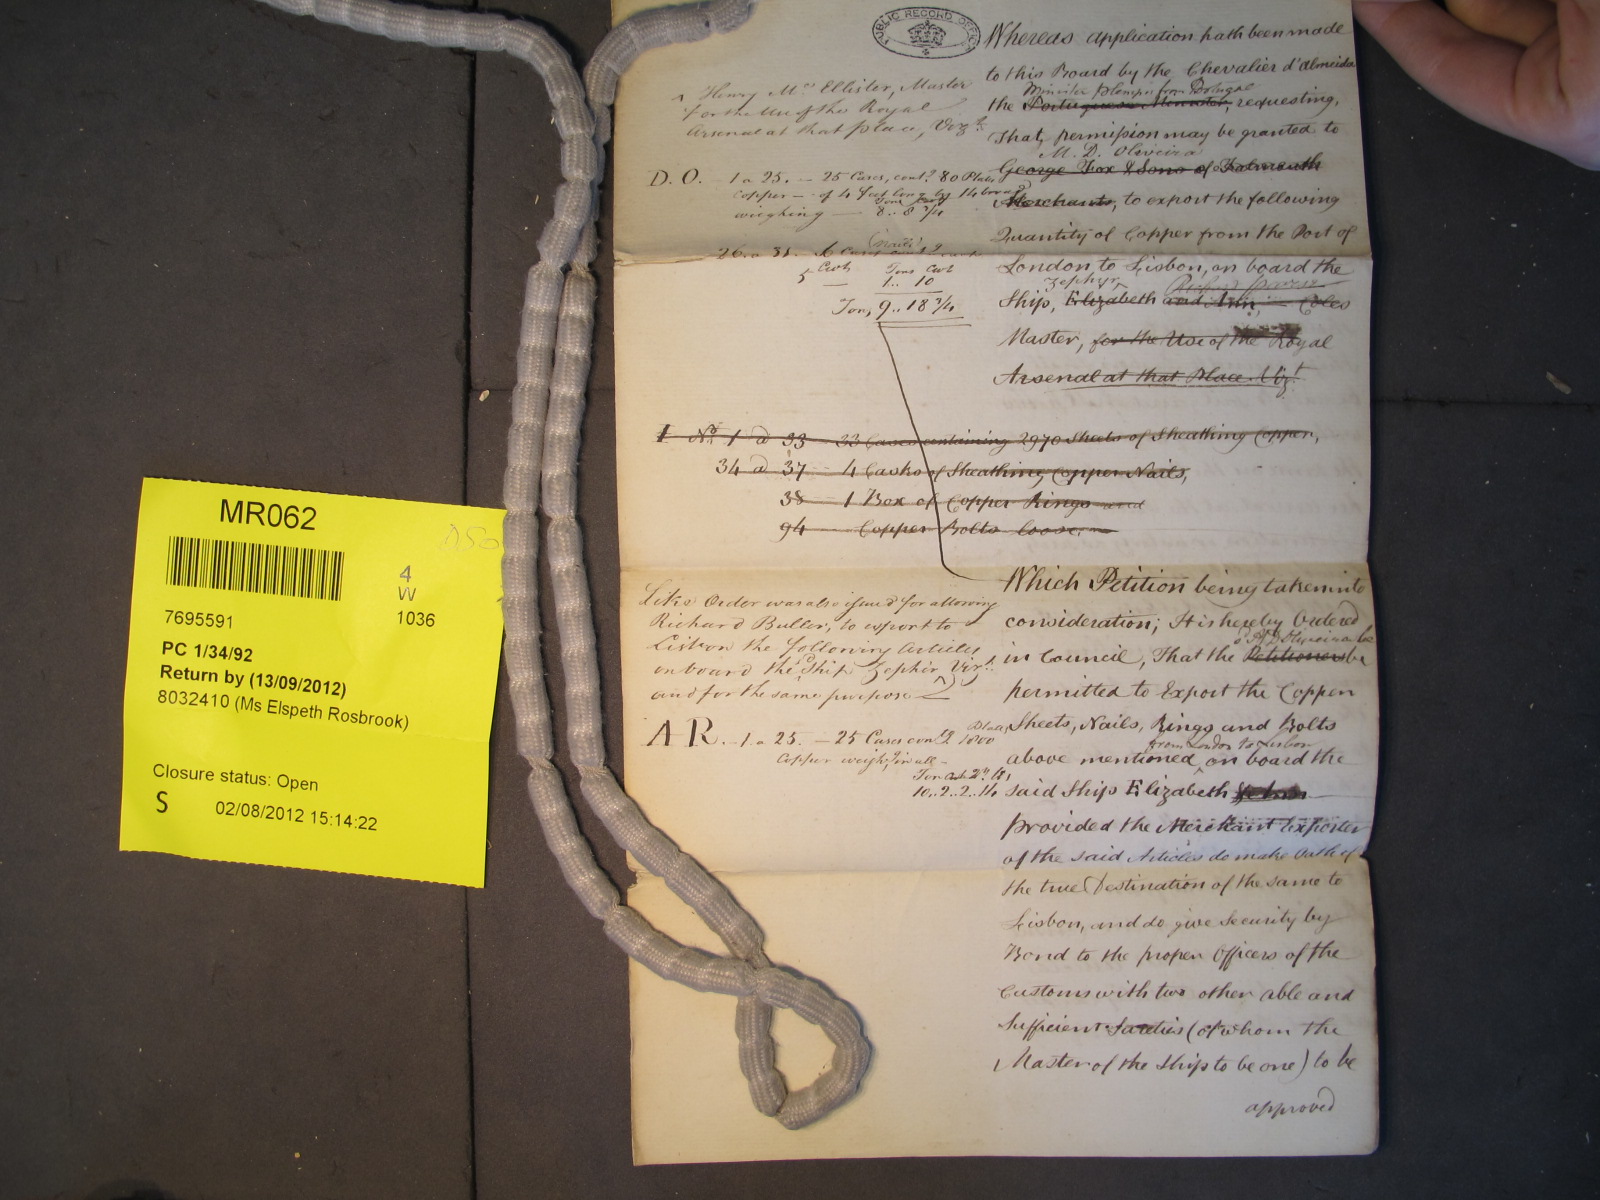 PUBLIC RECORD OFFICE
Whereas application hath been made
to this Board by the Chevalier d'almeida
Minister from Portugal
the Portuguese Minister, requesting,
That, permission may be granted to
M. D. Oliveira
George Fox & Sons of Falmouth
Merchants, to export the following
Quantity of Copper from the Port of
London to Lisbon, on board the
Zephyr
Ship, Elizabeth and Ann, Coles
Master, for the Use of the Royal
Arsenal at that Place. Vizt
Henry Mc Ellister, Master
for the Use of the Royal
Arsenal at that place, Vizt.
D. O. 1 a 25. — 25 Cases, contg 80 Plates
Copper — of 4 feet long by 14 broad
weighing — 8.. 8 3/4
26. a 31. 6
5 Casks Tons Cwt
— 1.. 10
Tons, 9.. 18 3/4
1 No. 1 a 33 33 Cases containing 2970 Sheets of Sheathing Copper,
34 a 37 4 Casks of Sheathing Copper Nails,
38 1 Box of Copper Rings and
94 Copper Bolts loose. —
Which Petition being taken into
consideration; It is hereby Ordered
M. D. Oliveira be
in Council, That the Petitioners be
permitted to Export the Copper
Sheets, Nails, Rings and Bolts
from London to Lisbon
above mentioned, on board the
said Ship Elizabeth & Ann
provided the Merchant Exporter
of the said Articles do make Oath of
the true Destination of the same to
Lisbon, and do give Security by
Bond to the proper Officers of the
Customs with two other able and
Sufficient Sureties (of whom the
Master of the Ship to be one) to be
approved
Like Order was also issued for allowing
Richard Buller, to export to
Lisbon the following Articles
on board the Ship Zephir Vizt.
and for the same purpose
AR. 1 a 25. — 25 Cases contg 1800 Plates
Copper weighg in all —
10.. 2.. 2.. 14
MR062
4
W
7695591 1036
PC 1/34/92
Return by (13/09/2012)
8032410 (Ms Elspeth Rosbrook)
Closure status: Open
S 02/08/2012 15:14:22